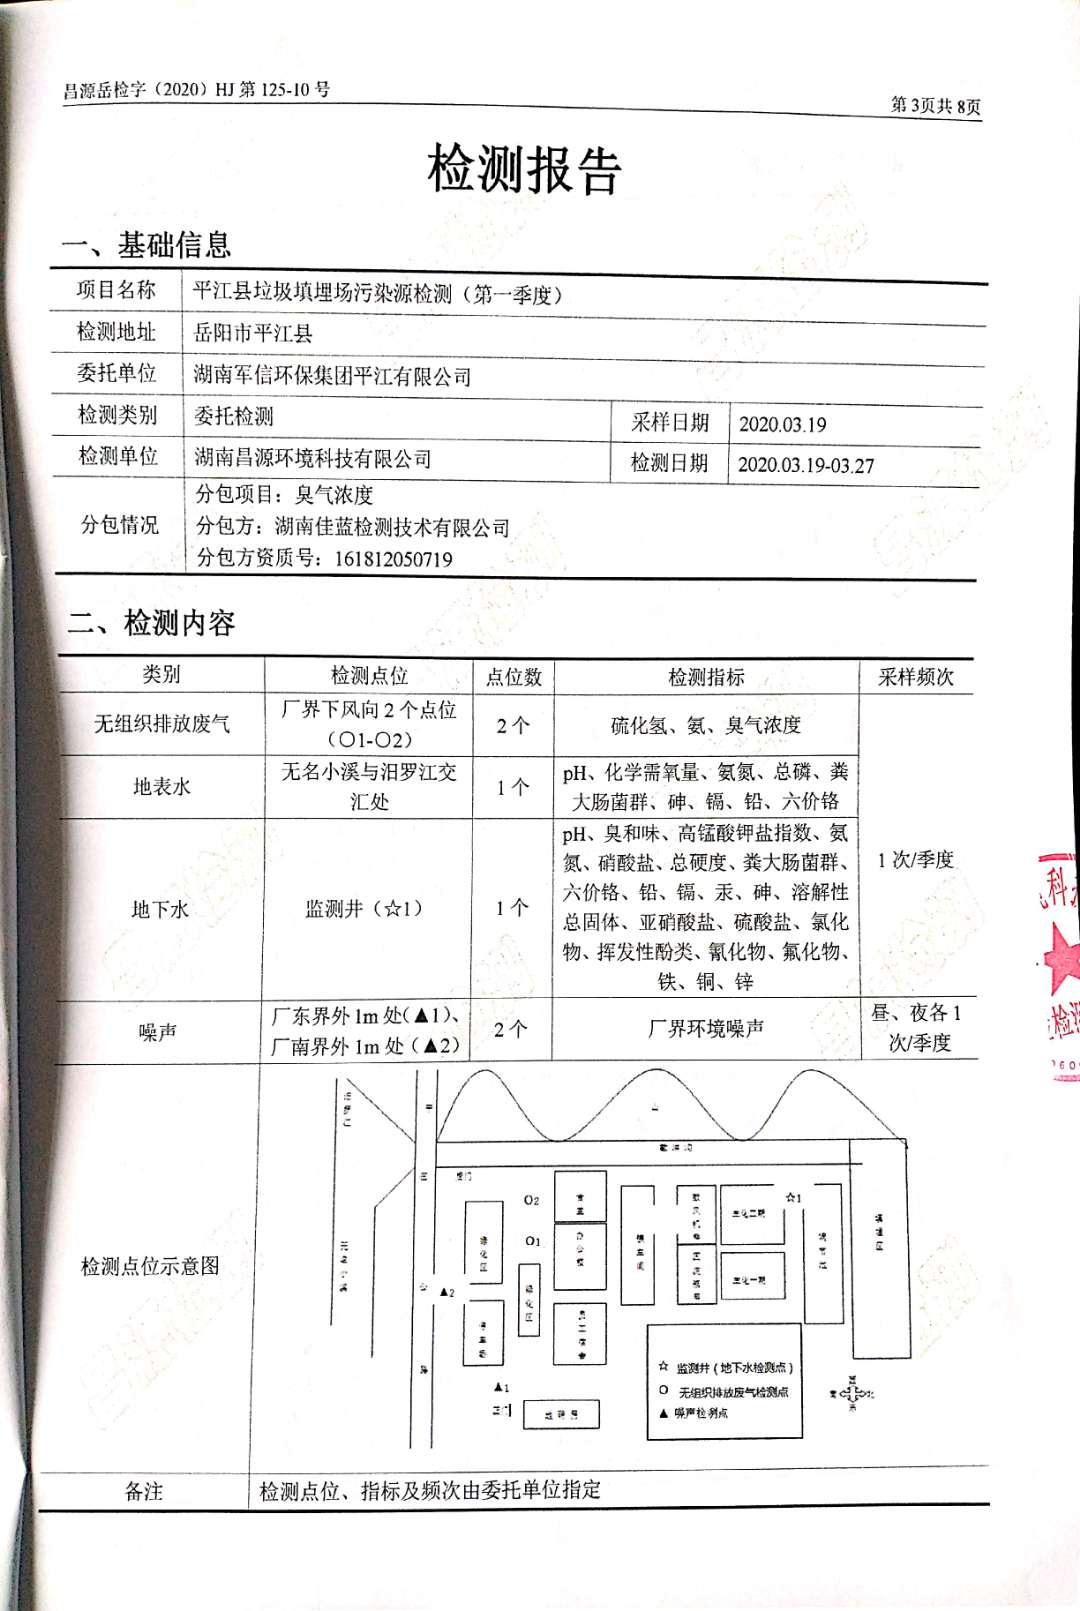 昌源岳检字（2020）HJ 第 125-10 号
第 3页共 8页
检测报告
一、基础信息
项目名称 平江县垃圾填埋场污染源检测（第一季度）
检测地址 岳阳市平江县
委托单位 湖南军信环保集团平江有限公司
检测类别 委托检测 采样日期 2020.03.19
检测单位 湖南昌源环境科技有限公司 检测日期 2020.03.19-03.27
分包项目：臭气浓度
分包情况 分包方：湖南佳蓝检测技术有限公司
分包方资质号：161812050719
二、检测内容
类别 检测点位 点位数 检测指标 采样频次
无组织排放废气 厂界下风向 2 个点位 2 个 硫化氢、氨、臭气浓度
（○1-○2）
地表水 无名小溪与汨罗江交 1 个 pH、化学需氧量、氨氮、总磷、粪
汇处 大肠菌群、砷、镉、铅、六价铬
pH、臭和味、高锰酸钾盐指数、氨
氮、硝酸盐、总硬度、粪大肠菌群、 1 次/季度
六价铬、铅、镉、汞、砷、溶解性
地下水 监测井（☆1） 1 个 总固体、亚硝酸盐、硫酸盐、氯化
物、挥发性酚类、氰化物、氟化物、
铁、铜、锌
噪声 厂东界外 1m 处（▲1）、 2 个 厂界环境噪声 昼、夜各 1
厂南界外 1m 处（▲2） 次/季度
检测点位示意图
山
○2
☆1
○1
绿化区
办公楼
生化二期
填埋区
调节池
▲2
绿化区
生化一期
停车场
员工宿舍
无名小溪
▲1
正门
地磅房
☆ 监测井（地下水检测点）
○ 无组织排放废气检测点
▲ 噪声检测点
西
南 北
东
备注 检测点位、指标及频次由委托单位指定
科
检测